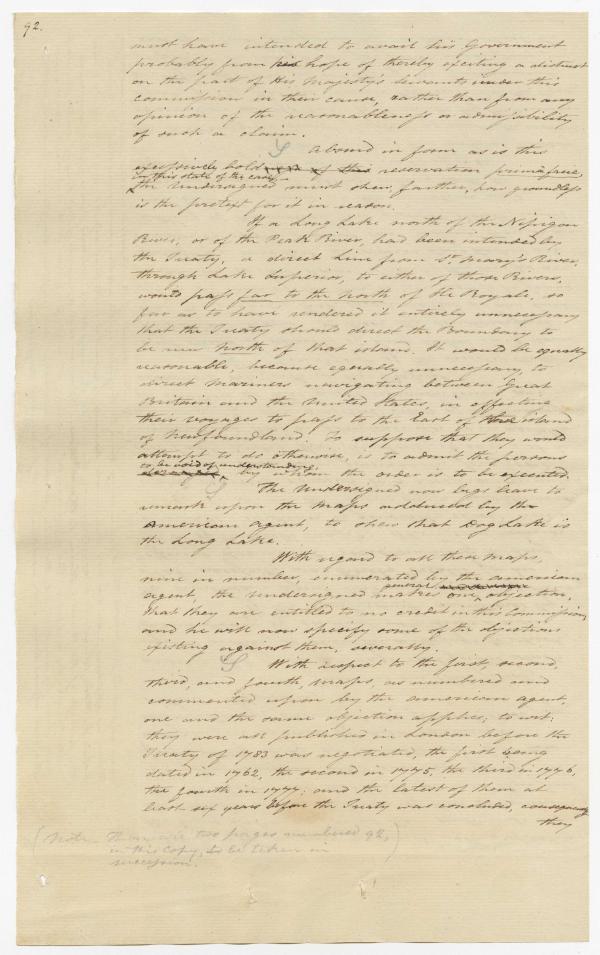 92.
must have intended to avail his Government
probably from his hope of thereby exciting a distrust
on the part of His Majesty's servants under this
commission in their cause, rather than from any
opinion of the reasonableness or admissibility
of such a claim.
Abound in form as is this
excessively bold reservation prima facie,
in this state of the case,
the Undersigned must shew, farther, how groundless
is the pretext for it in reason.
If a Long Lake north of the Nipigon
River, or of the Peak River, had been intended by
the Treaty, a direct line from St. Mary's River,
through Lake Superior, to either of those Rivers,
would pass far to the North of Ile Royale, so
far as to have rendered it entirely unnecessary
that the Treaty should direct the Boundary to
be run North of that island. It would be equally
reasonable, because equally unnecessary, to
direct mariners navigating between Great
Britain and the United States, in effecting
their voyages to pass to the East of the island
of Newfoundland: to suppose that they would
attempt to do otherwise, is to admit the persons
to be void of understanding
by whom the order is to be executed.
The Undersigned now begs leave to
remark upon the maps adduced by the
American agent, to shew that Dog Lake is
the Long Lake.
With regard to all these maps,
nine in number, enumerated by the American
general
agent, the Undersigned makes one objection,
that they are entitled to no credit in this Commission,
and he will now specify some of the objections
existing against them, severally.
With respect to the first, second,
third, and fourth, maps, as numbered and
commented upon by the American agent,
one and the same objection applies; to wit:
they were all published in London before the
Treaty of 1783 was negotiated, the first being
dated in 1762, the second in 1775, the third in 1776,
the fourth in 1777; and the latest of them at
least six years before the Treaty was concluded, consequently
they
(Note - There are two pages numbered 92,
in this Copy, to be taken in
succession.)